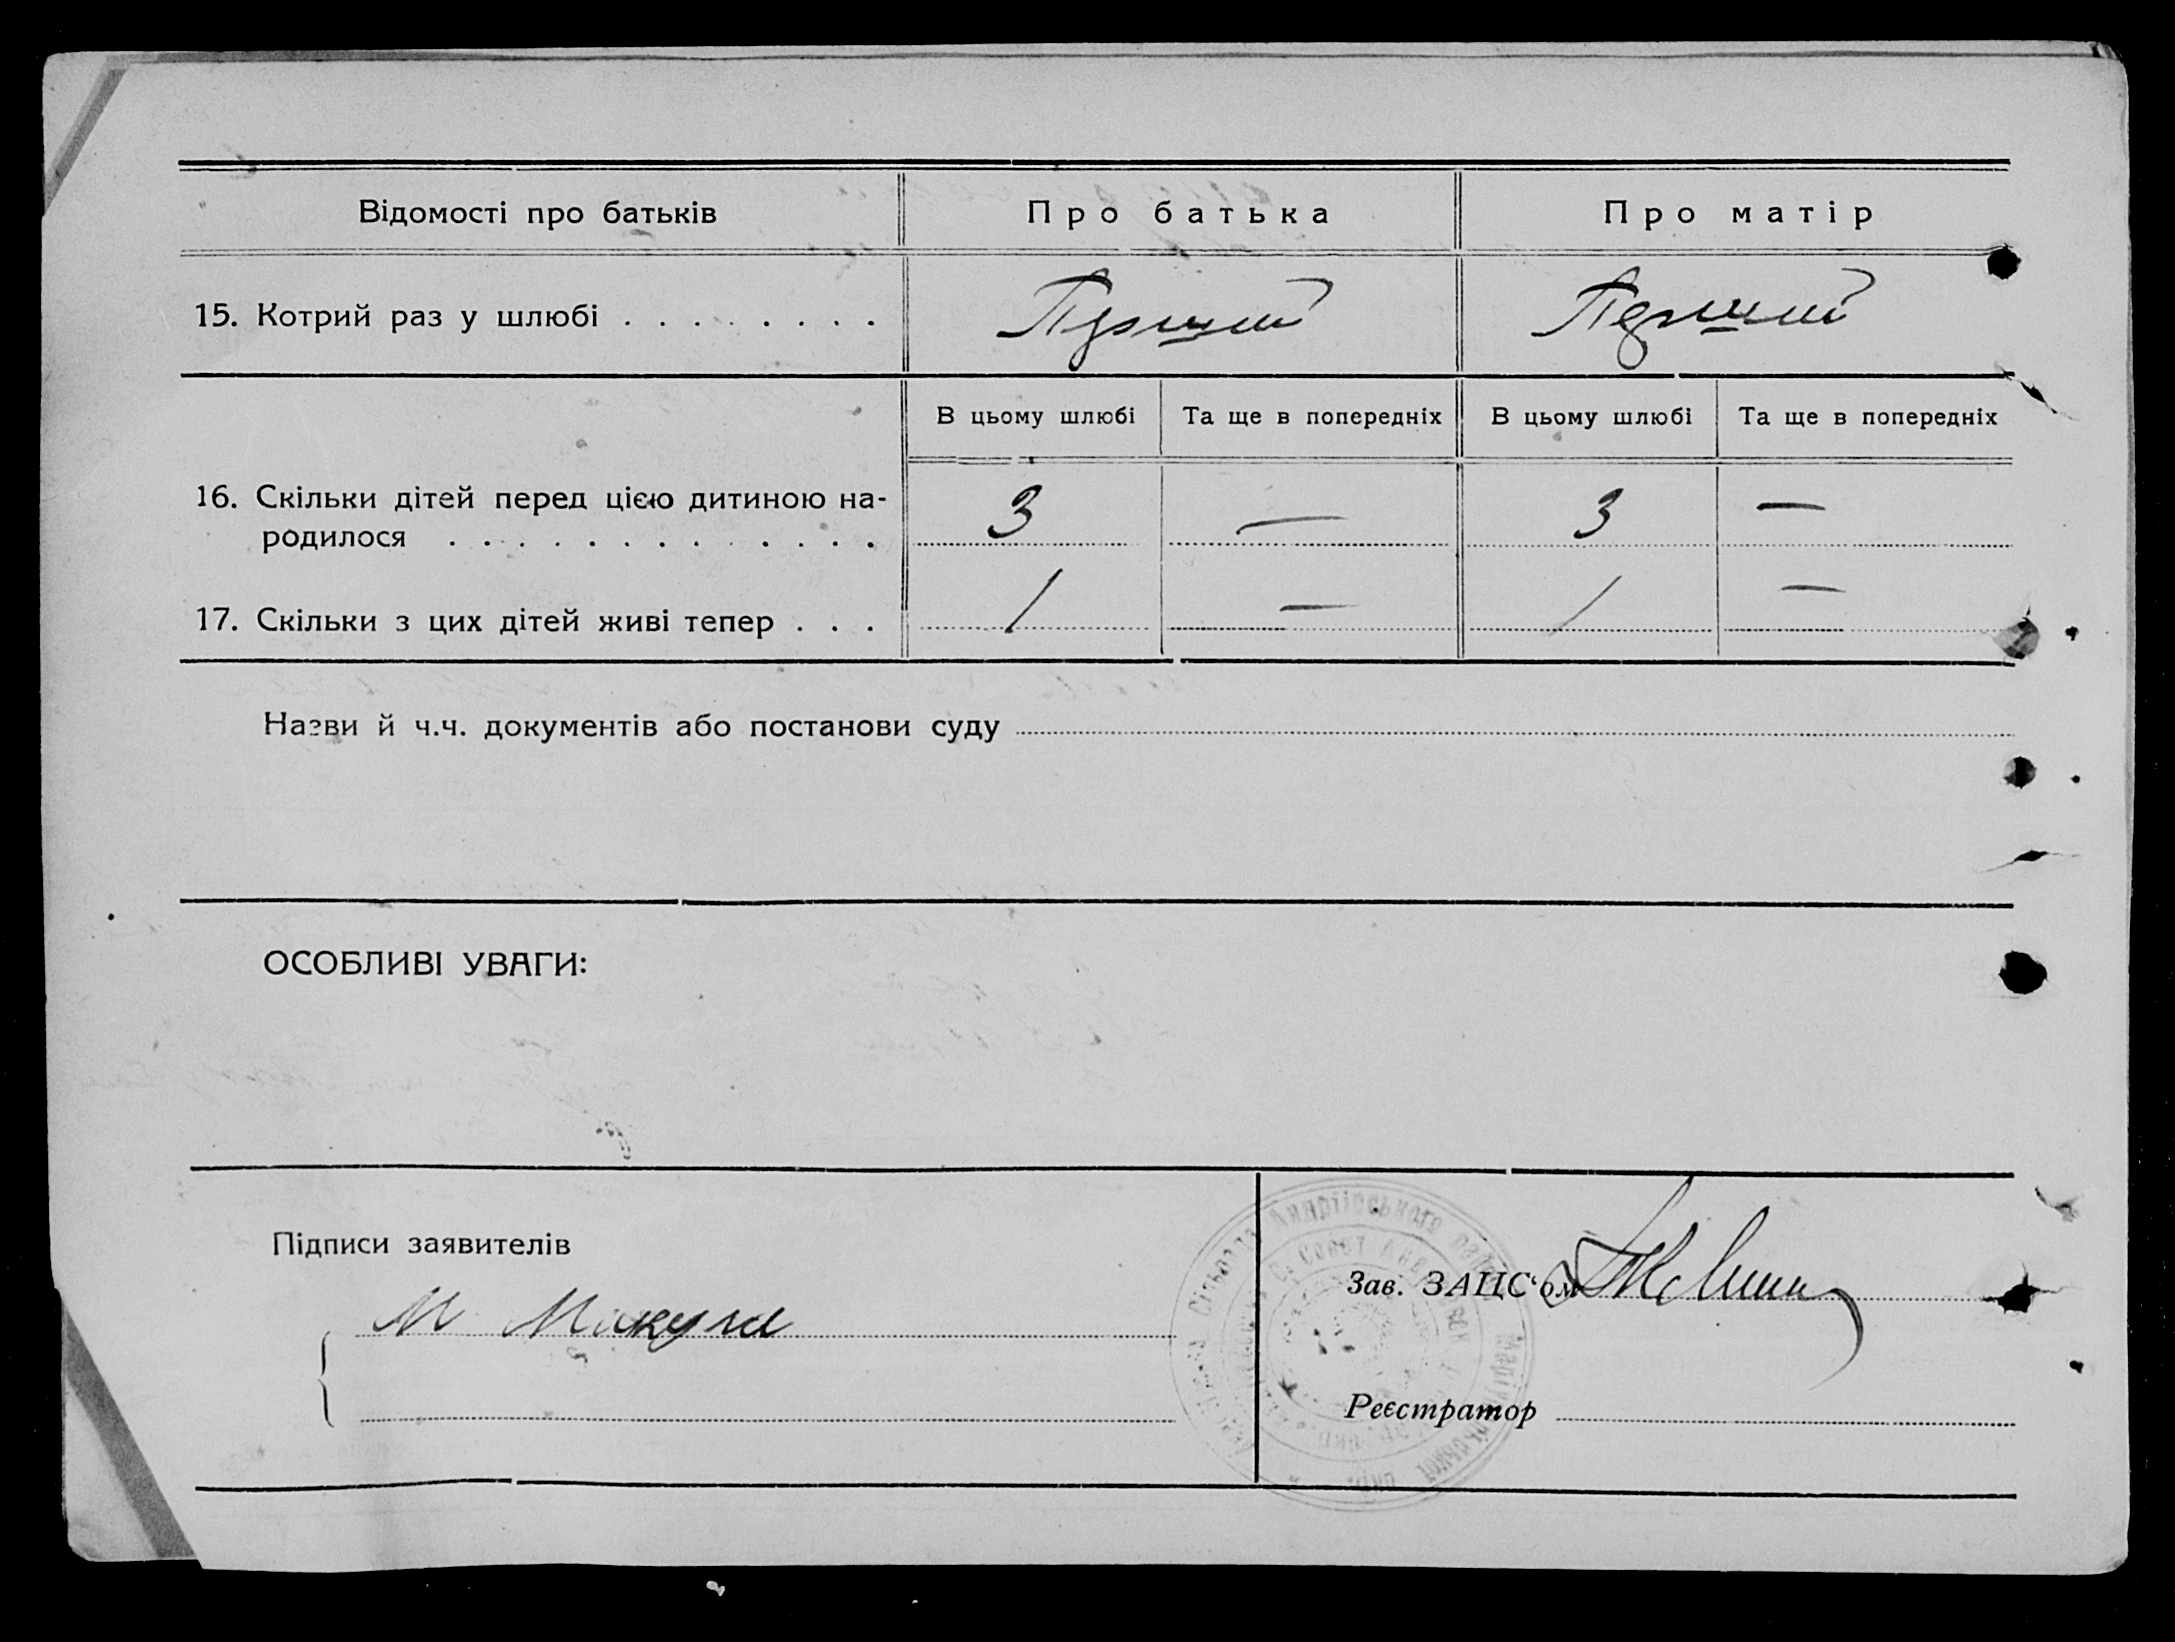 Відомості про батьків
Про батька
Про матір
15. Котрий раз у шлюбі . . . . . . . .
Перший
Перший
В цьому шлюбі
Та ще в попередніх
В цьому шлюбі
Та ще в попередніх
16. Скільки дітей перед цією дитиною на-
родилося . . . . . . . . . . . . .
3
—
3
—
17. Скільки з цих дітей живі тепер . . .
1
—
1
—
Назви й ч.ч. документів або постанови суду
ОСОБЛИВІ УВАГИ:
Підписи заявителів
М
Зав. ЗАЦС‘ом
Реєстратор